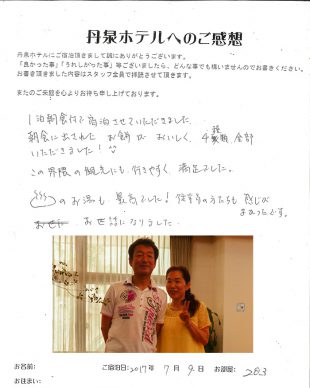 丹泉ホテルへのご感想
丹泉ホテルにご宿泊頂きまして誠にありがとうございます。
「良かった事」「うれしかった事」等ございましたら、どんな事でも構いませんのでお書きください。
お書き頂きました内容はスタッフ全員で拝読させて頂きます。
またのご来館を心よりお待ち申し上げております。
1泊朝食付で宿泊させていただきました。
朝食に出された お餅が おいしく、4種類 全部
いただきました!
この界隈の観光にも 行きやすく 満足でした。
のお湯も 最高でした! 従業員の方たちも 感じが
よかったです。
お世話になりました
お名前: ご宿泊日: 2017年 7月 9日 お部屋: 203
お住まい: